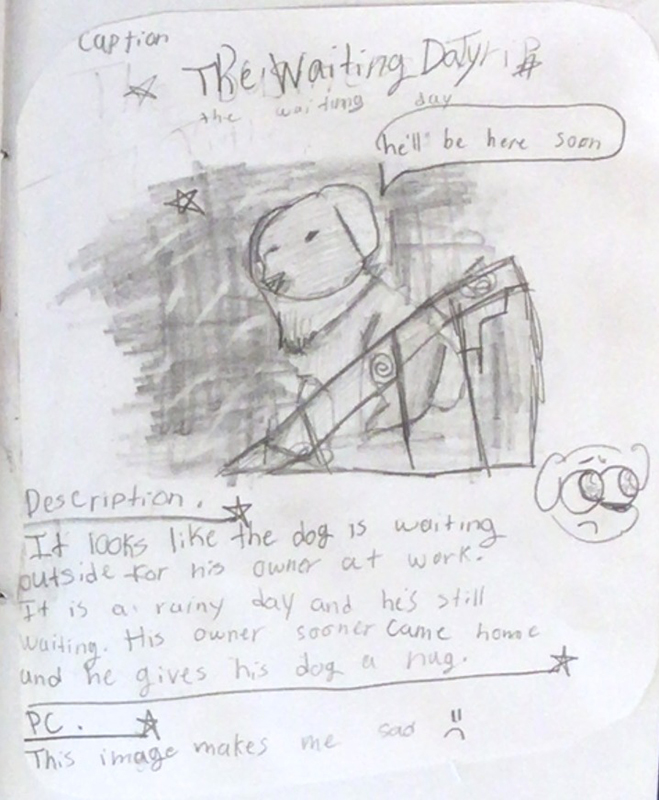 Caption
The Waiting Day
the waiting day
he'll be here soon
Description.
It looks like the dog is waiting
outside for his owner at work.
It is a rainy day and he's still
waiting. His owner sooner came home
and he gives his dog a hug.
PC.
This image makes me sad